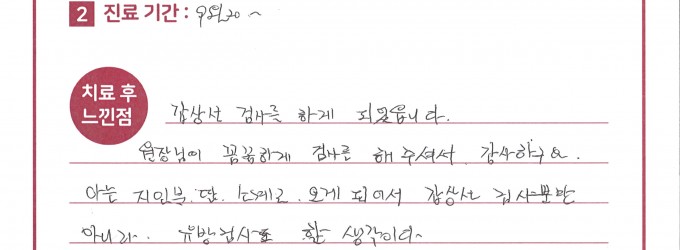 2 진료 기간 : 9월 20 ~
치료 후
느낀점
갑상선 검사를 하게 되었습니다.
원장님이 꼼꼼하게 검사를 해 주셔서 감사하구요.
아는 지인분 소개로 오게 되어서 갑상선 검사뿐만
아니라. 유방검사도 할 생각이다